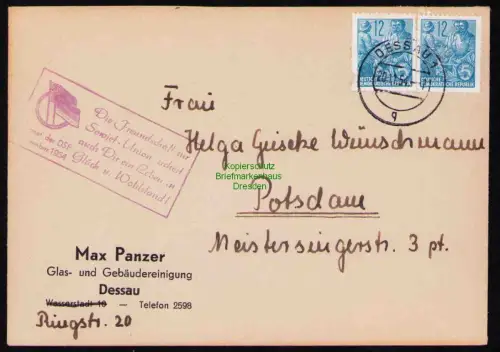 12
12
DEUTSCHE
DESSAU
q
Die Freundschaft zur
Sowjet-Union sichert
auch Dir ein Leben in
Glück u. Wohlstand!
der DSF
1954
Frau
Helga Giseke Wünschmann
Potsdam
Meistersingerstr. 3 pt.
Kopierschutz
Briefmarkenhaus
Dresden
Max Panzer
Glas- und Gebäudereinigung
Dessau
Wasserstadt 10 — Telefon 2598
Ringstr. 20